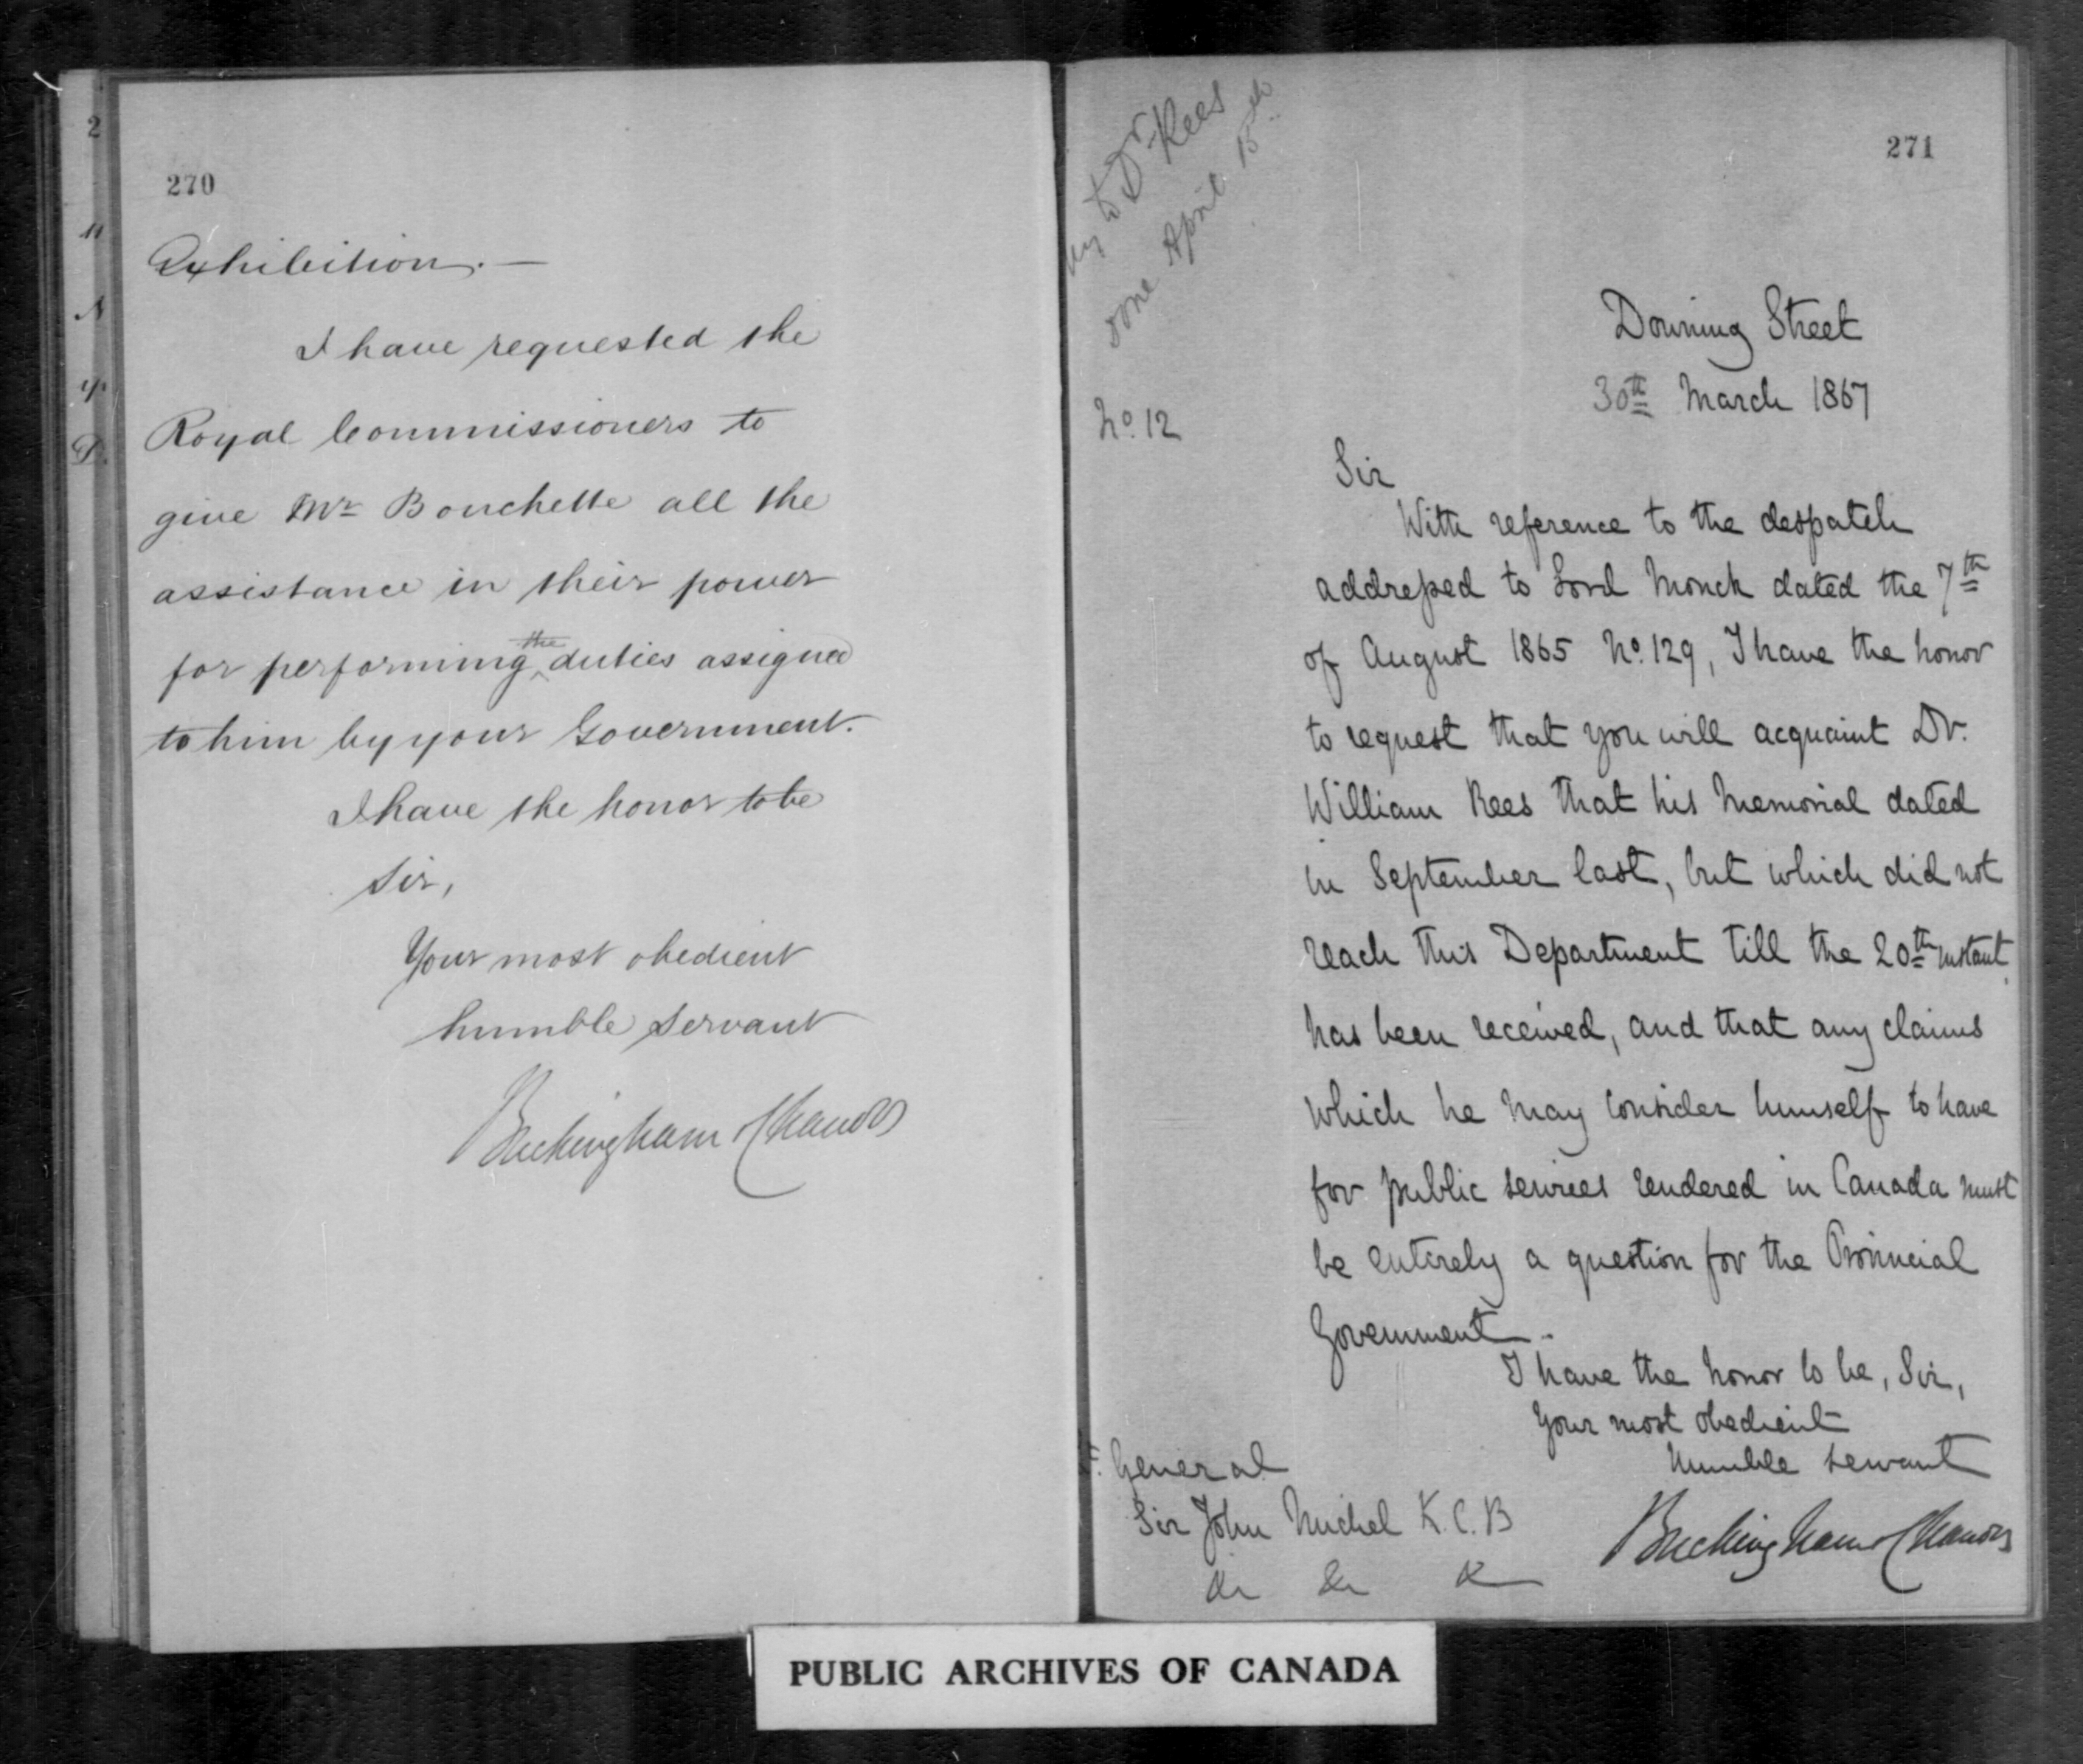 270
Exhibition. —
I have requested the
Royal Commissioners to
give Mr Bouchette all the
assistance in their power
for performing the duties assigned
to him by your Government.
I have the honor to be
Sir,
Your most obedient
humble servant
Buckingham & Chandos
2
271
to Dr Rees
done April 15th
Downing Street
30th March 1867
No. 12
Sir
With reference to the despatch
addressed to Lord Monck dated the 7th
of August 1865 No. 129, I have the honor
to request that you will acquaint Dr.
William Rees that his Memorial dated
in September last, but which did not
reach this Department till the 20th instant
has been received, and that any claims
which he may consider himself to have
for public services rendered in Canada must
be entirely a question for the Provincial
Government.
I have the honor to be, Sir,
Your most obedient
humble servant
Buckingham & Chandos
General
Sir John Michel K.C.B
&c &c &c
PUBLIC ARCHIVES OF CANADA